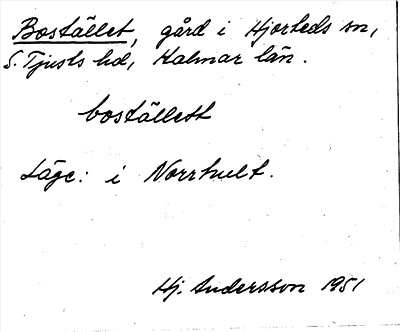 Bostället, gård i Hjorteds sn,
S. Tjusts hd, Kalmar län.
bostället
Läge: i Norrhult.
Hj. Andersson 1951